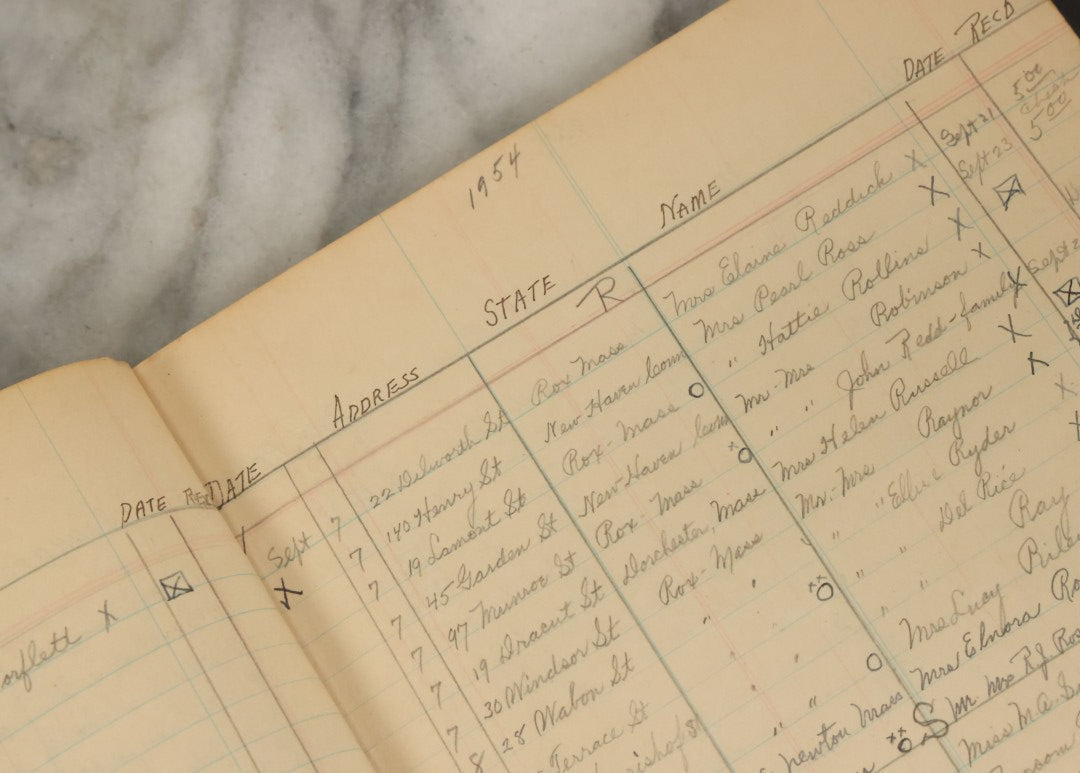 1954
DATE REC'D
DATE ADDRESS STATE R NAME DATE REC'D
Sept 7 22 Delworth St Rox Mass Mrs Elaine Reddick X Sept 21 5 00
7 140 Henry St New Haven Conn Mrs Pearl Ross X Sept 23 5 00
7 19 Lamont St Rox - Mass " Hattie Rollins X
7 45 Garden St New Haven Conn Mr - Mrs Robinson X
7 97 Munroe St Rox - Mass " " John Redd - family X Sept
7 19 Dracut St Dorchester, Mass Mrs Helen Russell X
7 30 Windsor St Rox - Mass Mr. - Mrs Raynor X
8 28 Wabon St " " " Ryder X
Terrace St " " " Del Rice X
" " " " Ray
" " Mrs Lucy
newton Mass Mrs Elnora
S Mr. Mrs R J
Miss M.A.
orflett X